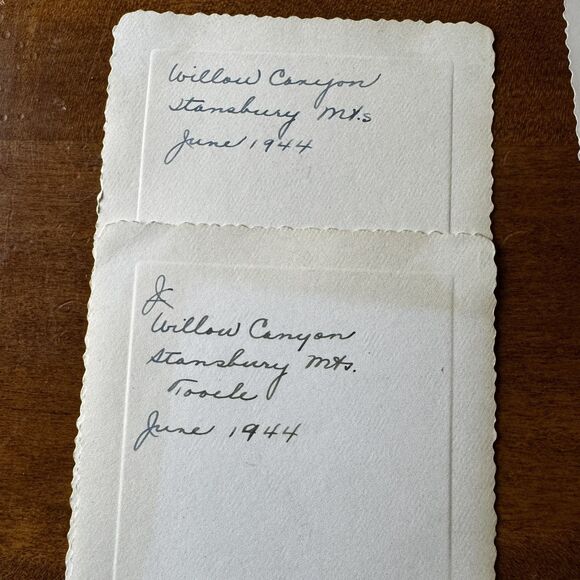 Willow Canyon
Stansbury Mts
June 1944
J
Willow Canyon
Stansbury Mts.
Tooele
June 1944